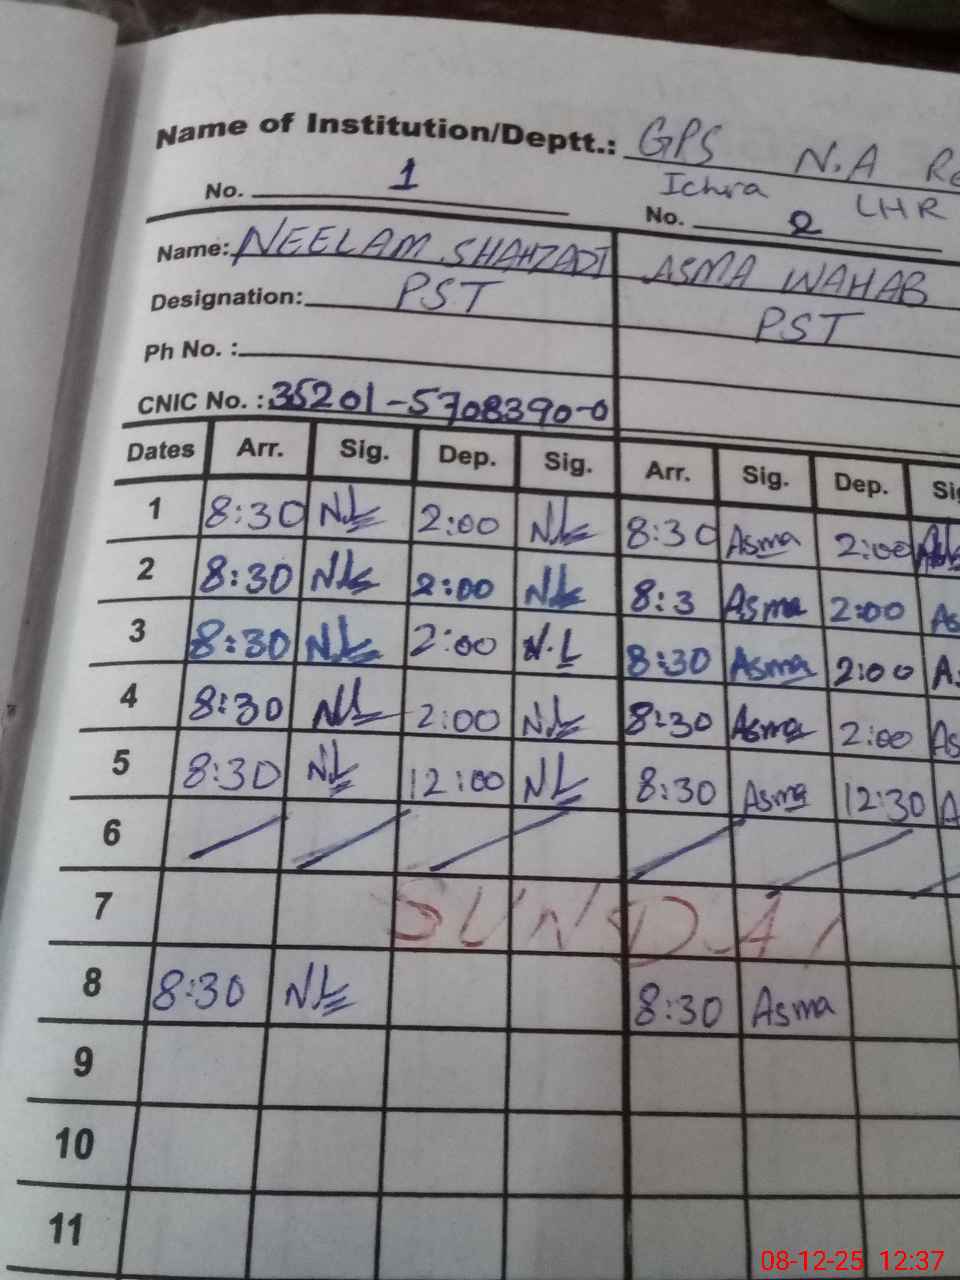 Name of Institution/Deptt.: GPS N.A
Ichra LHR
No. 1 No. 2
Name: NEELAM SHAHZADI ASMA WAHAB
Designation: PST PST
Ph No. :
CNIC No. : 35201-5708390-0
Dates Arr. Sig. Dep. Sig. Arr. Sig. Dep.
1 8:30 N.L 2:00 N.L 8:30 Asma 2:00
2 8:30 N.L 2:00 N.L 8:3 Asma 2:00
3 8:30 N.L 2:00 N.L 8:30 Asma 2:00
4 8:30 N.L 2:00 N.L 8:30 Asma 2:00
5 8:30 N.L 12:00 N.L 8:30 Asma 12:30
6
7 SUNDA
8 8:30 N.L 8:30 Asma
9
10
11
08-12-25 12:37